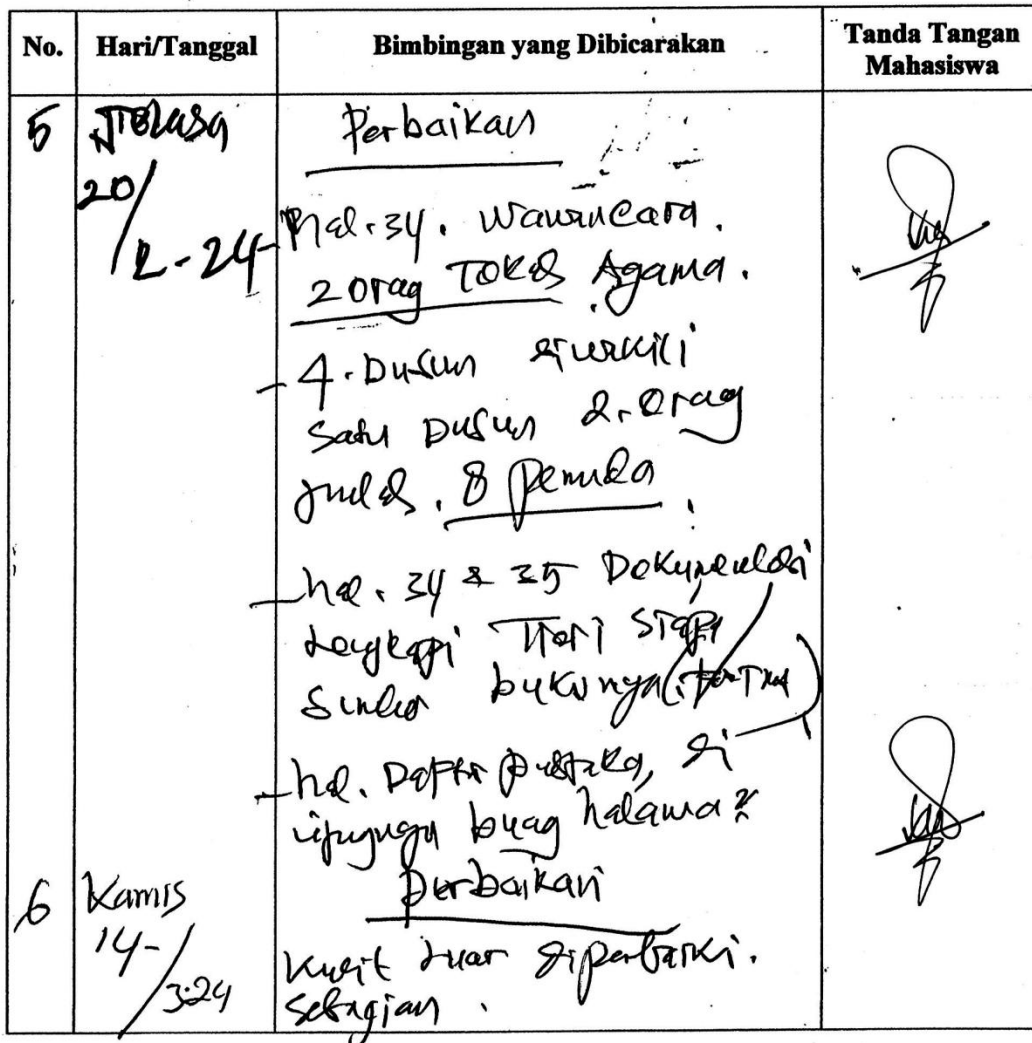 No. Hari/Tanggal Bimbingan yang Dibicarakan Tanda Tangan Mahasiswa
5 Selasa Perbaikan
20/2-24
- hal. 34. Wawancara.
2 orag Tokoh Agama.
- 4. Dusun diwakili
Satu Dusun 2. Orag
Jumlah. 8 Pemuda
- hal. 34 & 35 Dokumentasi
Lengkapi Teori Siapa
Sumber bukunya
- hal. Daftar Pustaka, di
ujungnya buag halama2
6 Kamis Perbaikan
14-/3-24
Kulit Luar diperbaiki.
Sebagian.